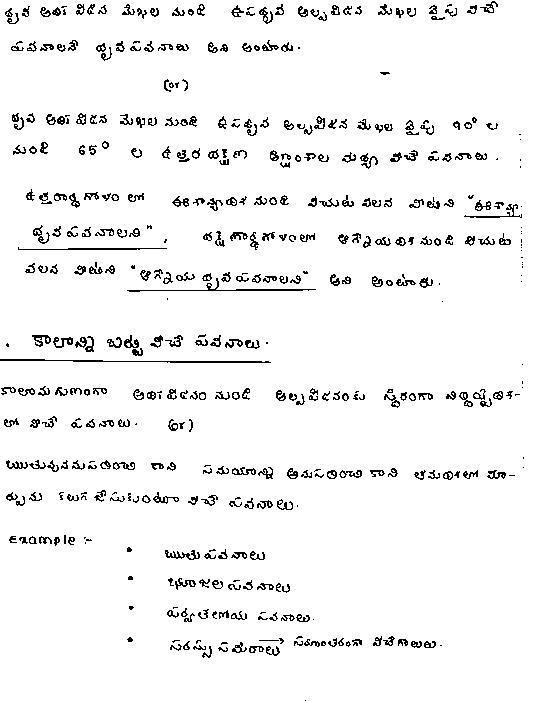 ధృవ అధిక పీడన మేఖల నుండి ఉపధృవ అల్పపీడన మేఖల వైపు వీచే
పవనాలనే ధృవ పవనాలు అని అంటారు.
(or)
ధృవ అధిక పీడన మేఖల నుండి ఉపధృవ అల్పపీడన మేఖల వైపు 90° ల
నుండి 65° ల ఉత్తర దక్షిణ మధ్య వీచే పవనాలు.
ఉత్తరార్థగోళంలో ఈశాన్యదిశ నుండి వీచుట వలన వీటిని "ఈశాన్య
ధృవ పవనాలని", దక్షిణార్థగోళంలో ఆగ్నేయదిశ నుండి వీచుట
వలన వీటిని "ఆగ్నేయ ధృవ పవనాలని" అని అంటారు.
. కాలాన్ని బట్టి వీచే పవనాలు.
కాలానుగుణంగా అధికపీడనం నుండి అల్పపీడనంకు స్థిరంగా నిర్దిష్టదిశ-
లో వీచే పవనాలు. (or)
ఋతువుననుసరించి కాని సమయాన్ని అనుసరించి కాని తమదిశలో మా-
ర్పును కలుగజేసుకుంటూ వీచే పవనాలు.
Example :-
• ఋతుపవనాలు
• భూజల పవనాలు
• పర్వతలోయ పవనాలు.
• సరస్సు సమీరాలు → వీచేగాలులు.